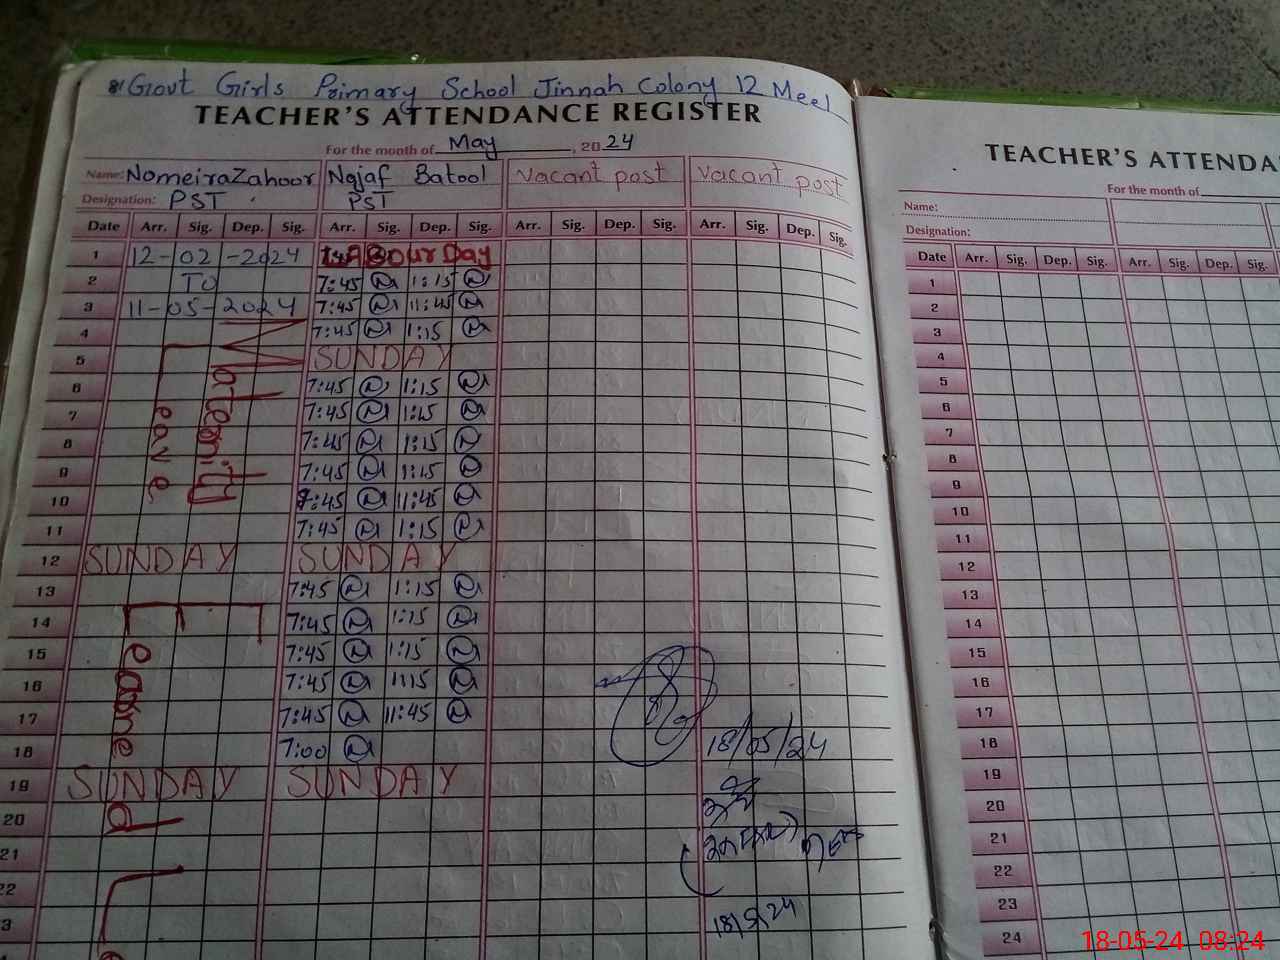 Govt Girls Primary School Jinnah Colony 12 Meel
TEACHER'S ATTENDANCE REGISTER
For the month of May, 2024
Name: Nomeira Zahoor Najaf Batool Vacant post Vacant post
Designation: PST PST
Date Arr. Sig. Dep. Sig. Arr. Sig. Dep. Sig. Arr. Sig. Dep. Sig. Arr. Sig. Dep. Sig.
1 12-02-2024 Labour Day
2 To 7:45 1:15
3 11-05-2024 7:45 11:45
4 7:45 1:15
5 SUNDAY
6 7:45 1:15
7 7:45 1:15
8 7:45 1:15
9 7:45 1:15
10 7:45 11:45
11 7:45 1:15
Maternity
Leave
12 SUNDAY SUNDAY
13 7:45 1:15
14 7:45 1:15
15 7:45 1:15
16 7:45 1:15
17 7:45 11:45
18 7:00
19 SUNDAY SUNDAY
20
21
22
3
Earned
18/05/24
18/5/24
TEACHER'S ATTENDA
For the month of
Name:
Designation:
Date Arr. Sig. Dep. Sig. Arr. Sig. Dep. Sig.
1
2
3
4
5
6
7
8
9
10
11
12
13
14
15
16
17
18
19
20
21
22
23
24
18-05-24 08:24